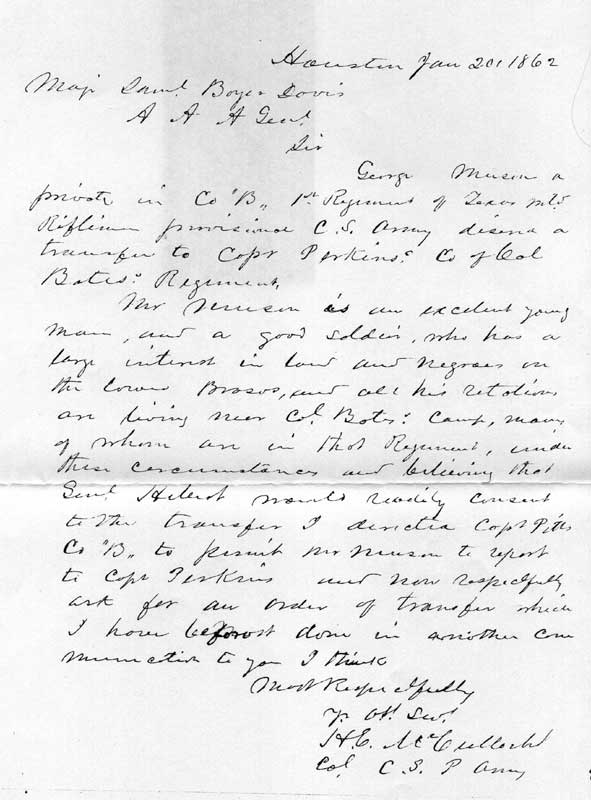 Houston Jan 20, 1862
Maj. Saml. Boyer Davis
A A A Genl.
Sir
George Munson a
private in Co "B," 1st Regiment of Texas Mtd
Riflemen provisional C.S. Army desires a
transfer to Capt Perkins. Co of Col
Bates. Regiment.
Mr Munson is an excelent young
man, and a good soldier, who has a
large interest in land and negroes on
the lower Brasos, and all his relations
are living near Col. Bates. Camp, many
of whom are in that Regiment, under
these circumstances and believing that
Genl. Hebert would readily consent
to the transfer I directed Capt Pitts
Co "B," to permit Mr Munson to report
to Capt Perkins and now respectfully
ask for an order of transfer which
I have done in another com
munication to you I think
Most Respectfully
yr. Obt. Servt.
H.E. McCulloch
Col. C.S. P Army